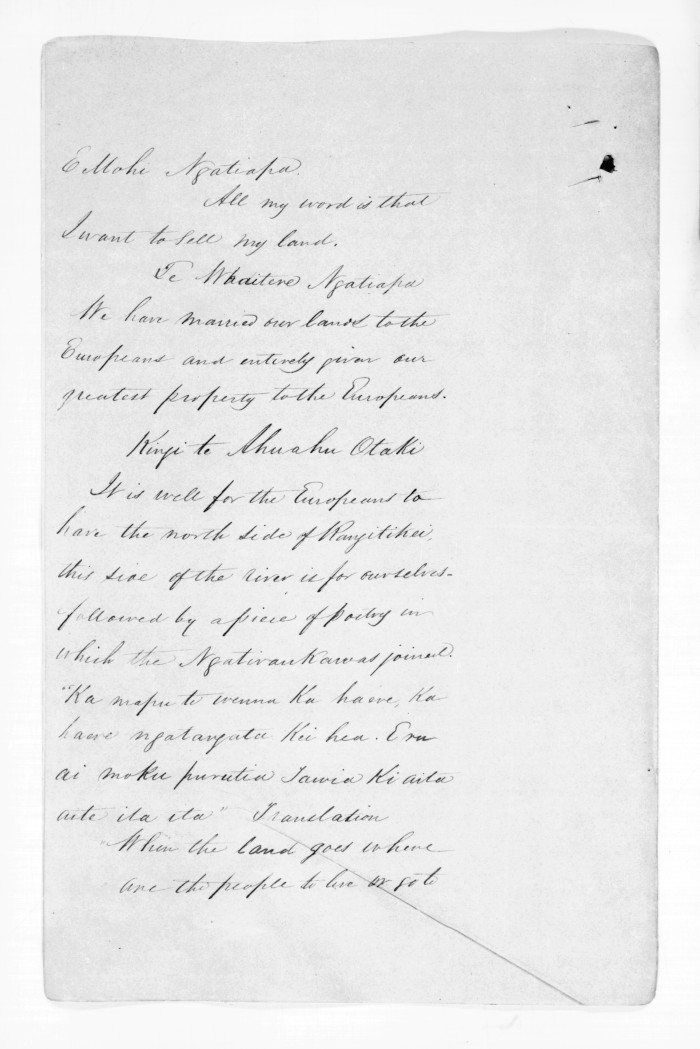 E Mohi Ngatiapa.
All my word is that
I want to sell my land.
Te Whaitere Ngatiapa
We have married our lands to the
Europeans and entirely given our
greatest property to the Europeans.
Kingi te Ahuahu Otaki
It is well for the Europeans to
have the north side of Rangitikei,
this side of the river is for ourselves-
followed by a piece of poetry in
which the Ngatiraukawas joined.
"Ka mapu te wenna Ka haere, Ka
haere ngatangata Kei hea. E ru
ai moku purutia Tawia Ki aita
aite ita ita" Translation
"When the land goes where
are the people to live or go to